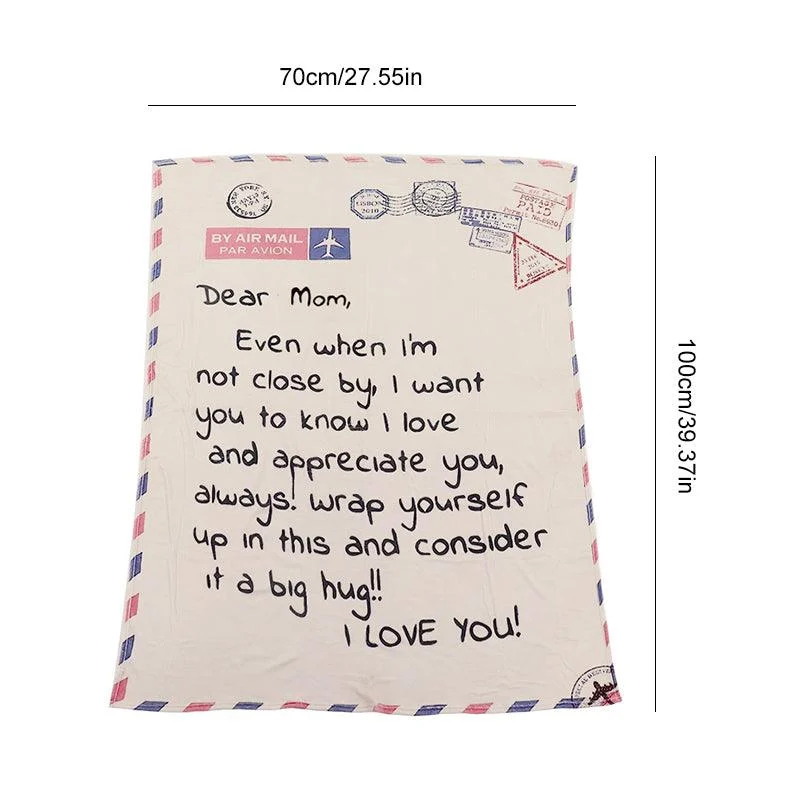 70cm/27.55in
100cm/39.37in
LISBON
2010
POSTAGE
PAID
BY AIR MAIL
PAR AVION
Dear Mom,
Even when i'm
not close by, I want
you to know I love
and appreciate you,
always! wrap yourself
up in this and consider
it a big hug!!
I LOVE YOU!